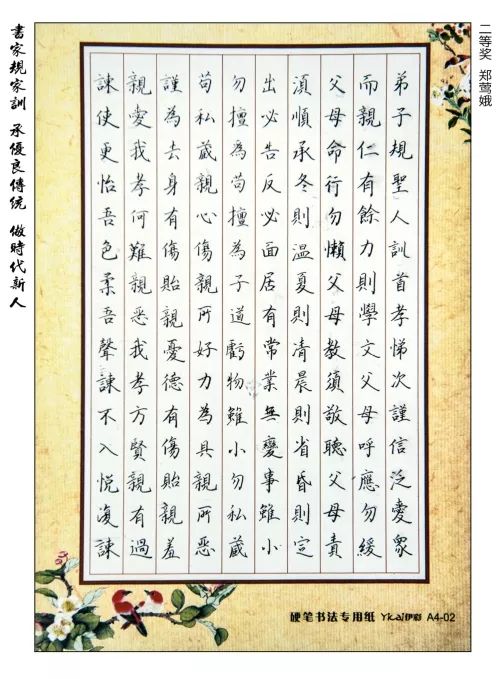 二等奖 郑莺娥
弟子規聖人訓首孝悌次謹信泛愛眾
而親仁有餘力則學文父母呼應勿緩
父母命行勿懶父母教須敬聽父母責
須順承冬則温夏則清晨則省昏則定
出必告反必面居有常業無變事雖小
勿擅為苟擅為子道虧物雖小勿私藏
苟私藏親心傷親所好力為具親所惡
謹為去身有傷貽親憂德有傷貽親羞
親愛我孝何難親惡我孝方賢親有過
諫使更怡吾色柔吾聲諫不入悅復諫
書家規家訓 承優良傳統 做時代新人
硬笔书法专用纸 Ykai伊彩 A4-02